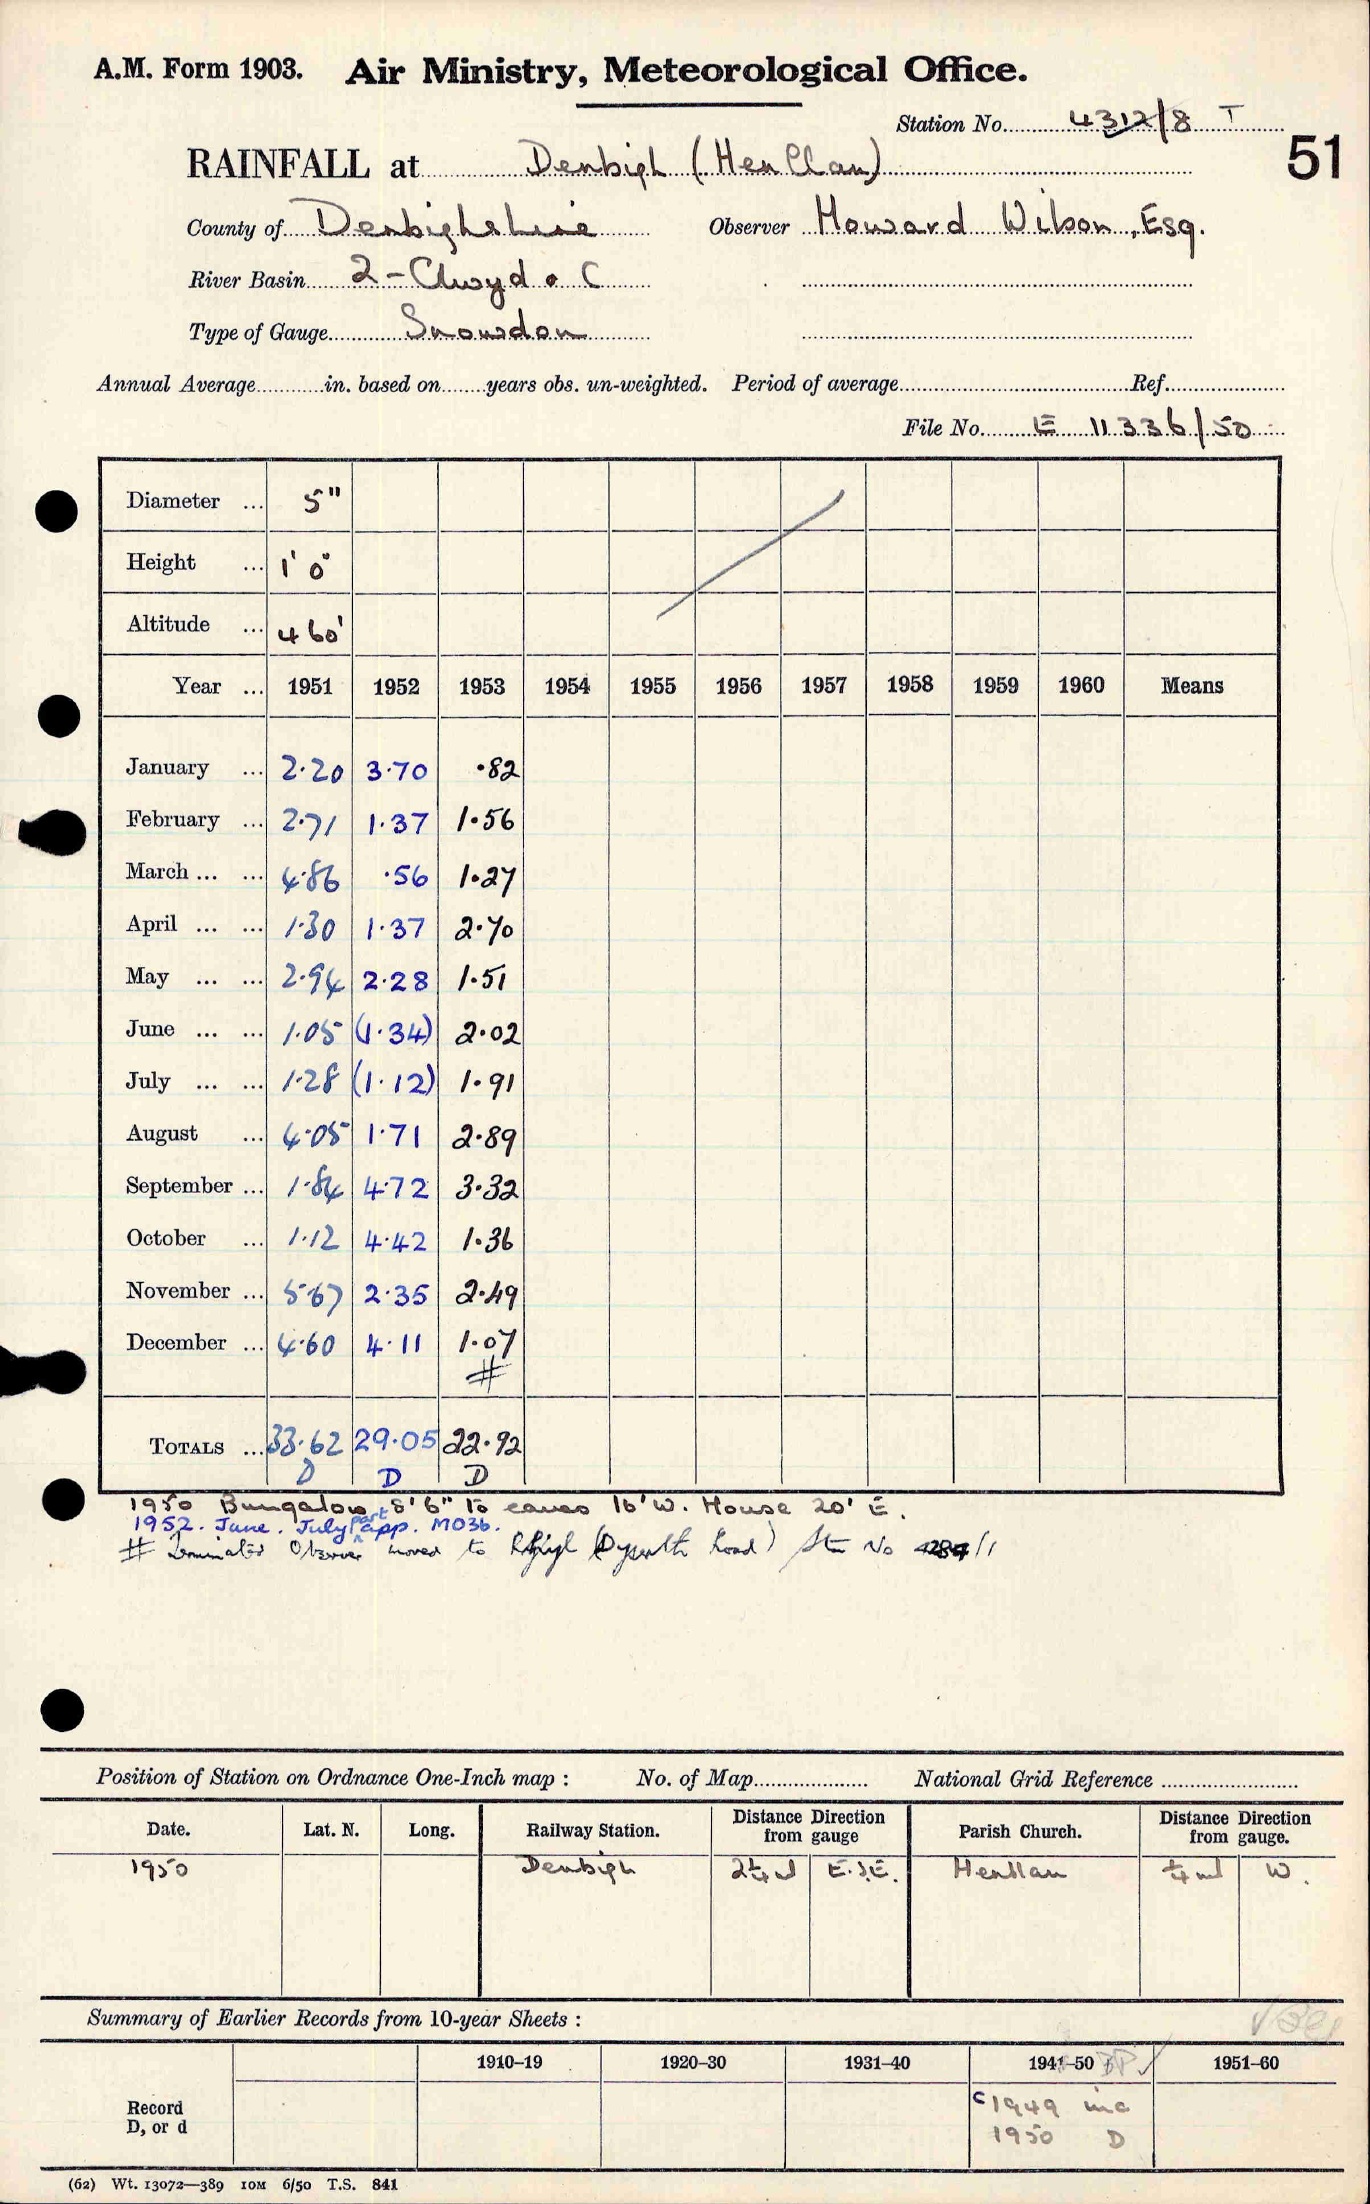 A.M. Form 1903. Air Ministry, Meteorological Office.
Station No. 4312/8 T
51
RAINFALL at Denbigh (Henllan)
County of Denbighshire Observer Howard Wilson, Esq.
River Basin 2 - Clwyd & C
Type of Gauge Snowdon
Annual Average in. based on years obs. un-weighted. Period of average Ref.
File No. E 11336/50
Diameter ... 5"
Height ... 1' 0"
Altitude ... 460'
Year ... 1951 1952 1953 1954 1955 1956 1957 1958 1959 1960 Means
January ... 2.20 3.70 .82
February ... 2.71 1.37 1.56
March ... ... 4.86 .56 1.27
April ... ... 1.30 1.37 2.70
May ... ... 2.94 2.28 1.51
June ... ... 1.05 (1.34) 2.02
July ... ... 1.28 (1.12) 1.91
August ... 4.05 1.71 2.89
September ... 1.84 4.72 3.32
October ... 1.12 4.42 1.36
November ... 5.67 2.35 2.49
December ... 4.60 4.11 1.07
#
TOTALS ... 33.62 29.05 22.92
D D D
1950 Bungalow 8' 6" to eaves 16' W. House 20' E.
1952. June. July part app. MO3b.
# Terminated Observer moved to Rhyl (Dyserth Road) Stn No 4284/1
Position of Station on Ordnance One-Inch map : No. of Map National Grid Reference
Date. Lat. N. Long. Railway Station. Distance Direction from gauge Parish Church. Distance Direction from gauge.
1950 Denbigh 2¼ ml E.S.E. Henllan ¼ ml W.
Summary of Earlier Records from 10-year Sheets :
1910–19 1920–30 1931–40 1941–50 BP 1951–60
Record D, or d
c 1949 inc
1950 D
(62) Wt. 13072—389 10M 6/50 T.S. 841